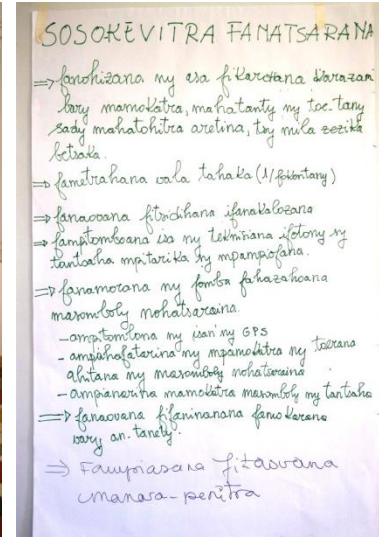 SOSOKEVITRA FANATSARANA
⇒ fanohizana ny asa fikarohana karazam
bary mamokatra, mahatanty ny toe-tany
sady mahatohitra aretina, tsy mila zezika
betsaka.
⇒ fametrahana vala tahaka (1/fokontany)
⇒ fanaovana fitsidihana ifanakalozana
⇒ fampitomboana isa ny teknisiana ifotony ny
tantsaha mpitarika ny mpampiofana.
⇒ fanamorana ny fomba fahazahoana
masomboly nohatsaraina.
- ampitomboina ny isan'ny GPS
- ampahafatarina ny mpamokatra ny toerana
ahitana ny masomboly nohatsaraina
- ampianarina mamokatra masomboly ny tantsaha
⇒ fanaovana fifaninanana famokarana
vary an-tanety.
⇒ Fampiasana fitaovana
manara-penitra